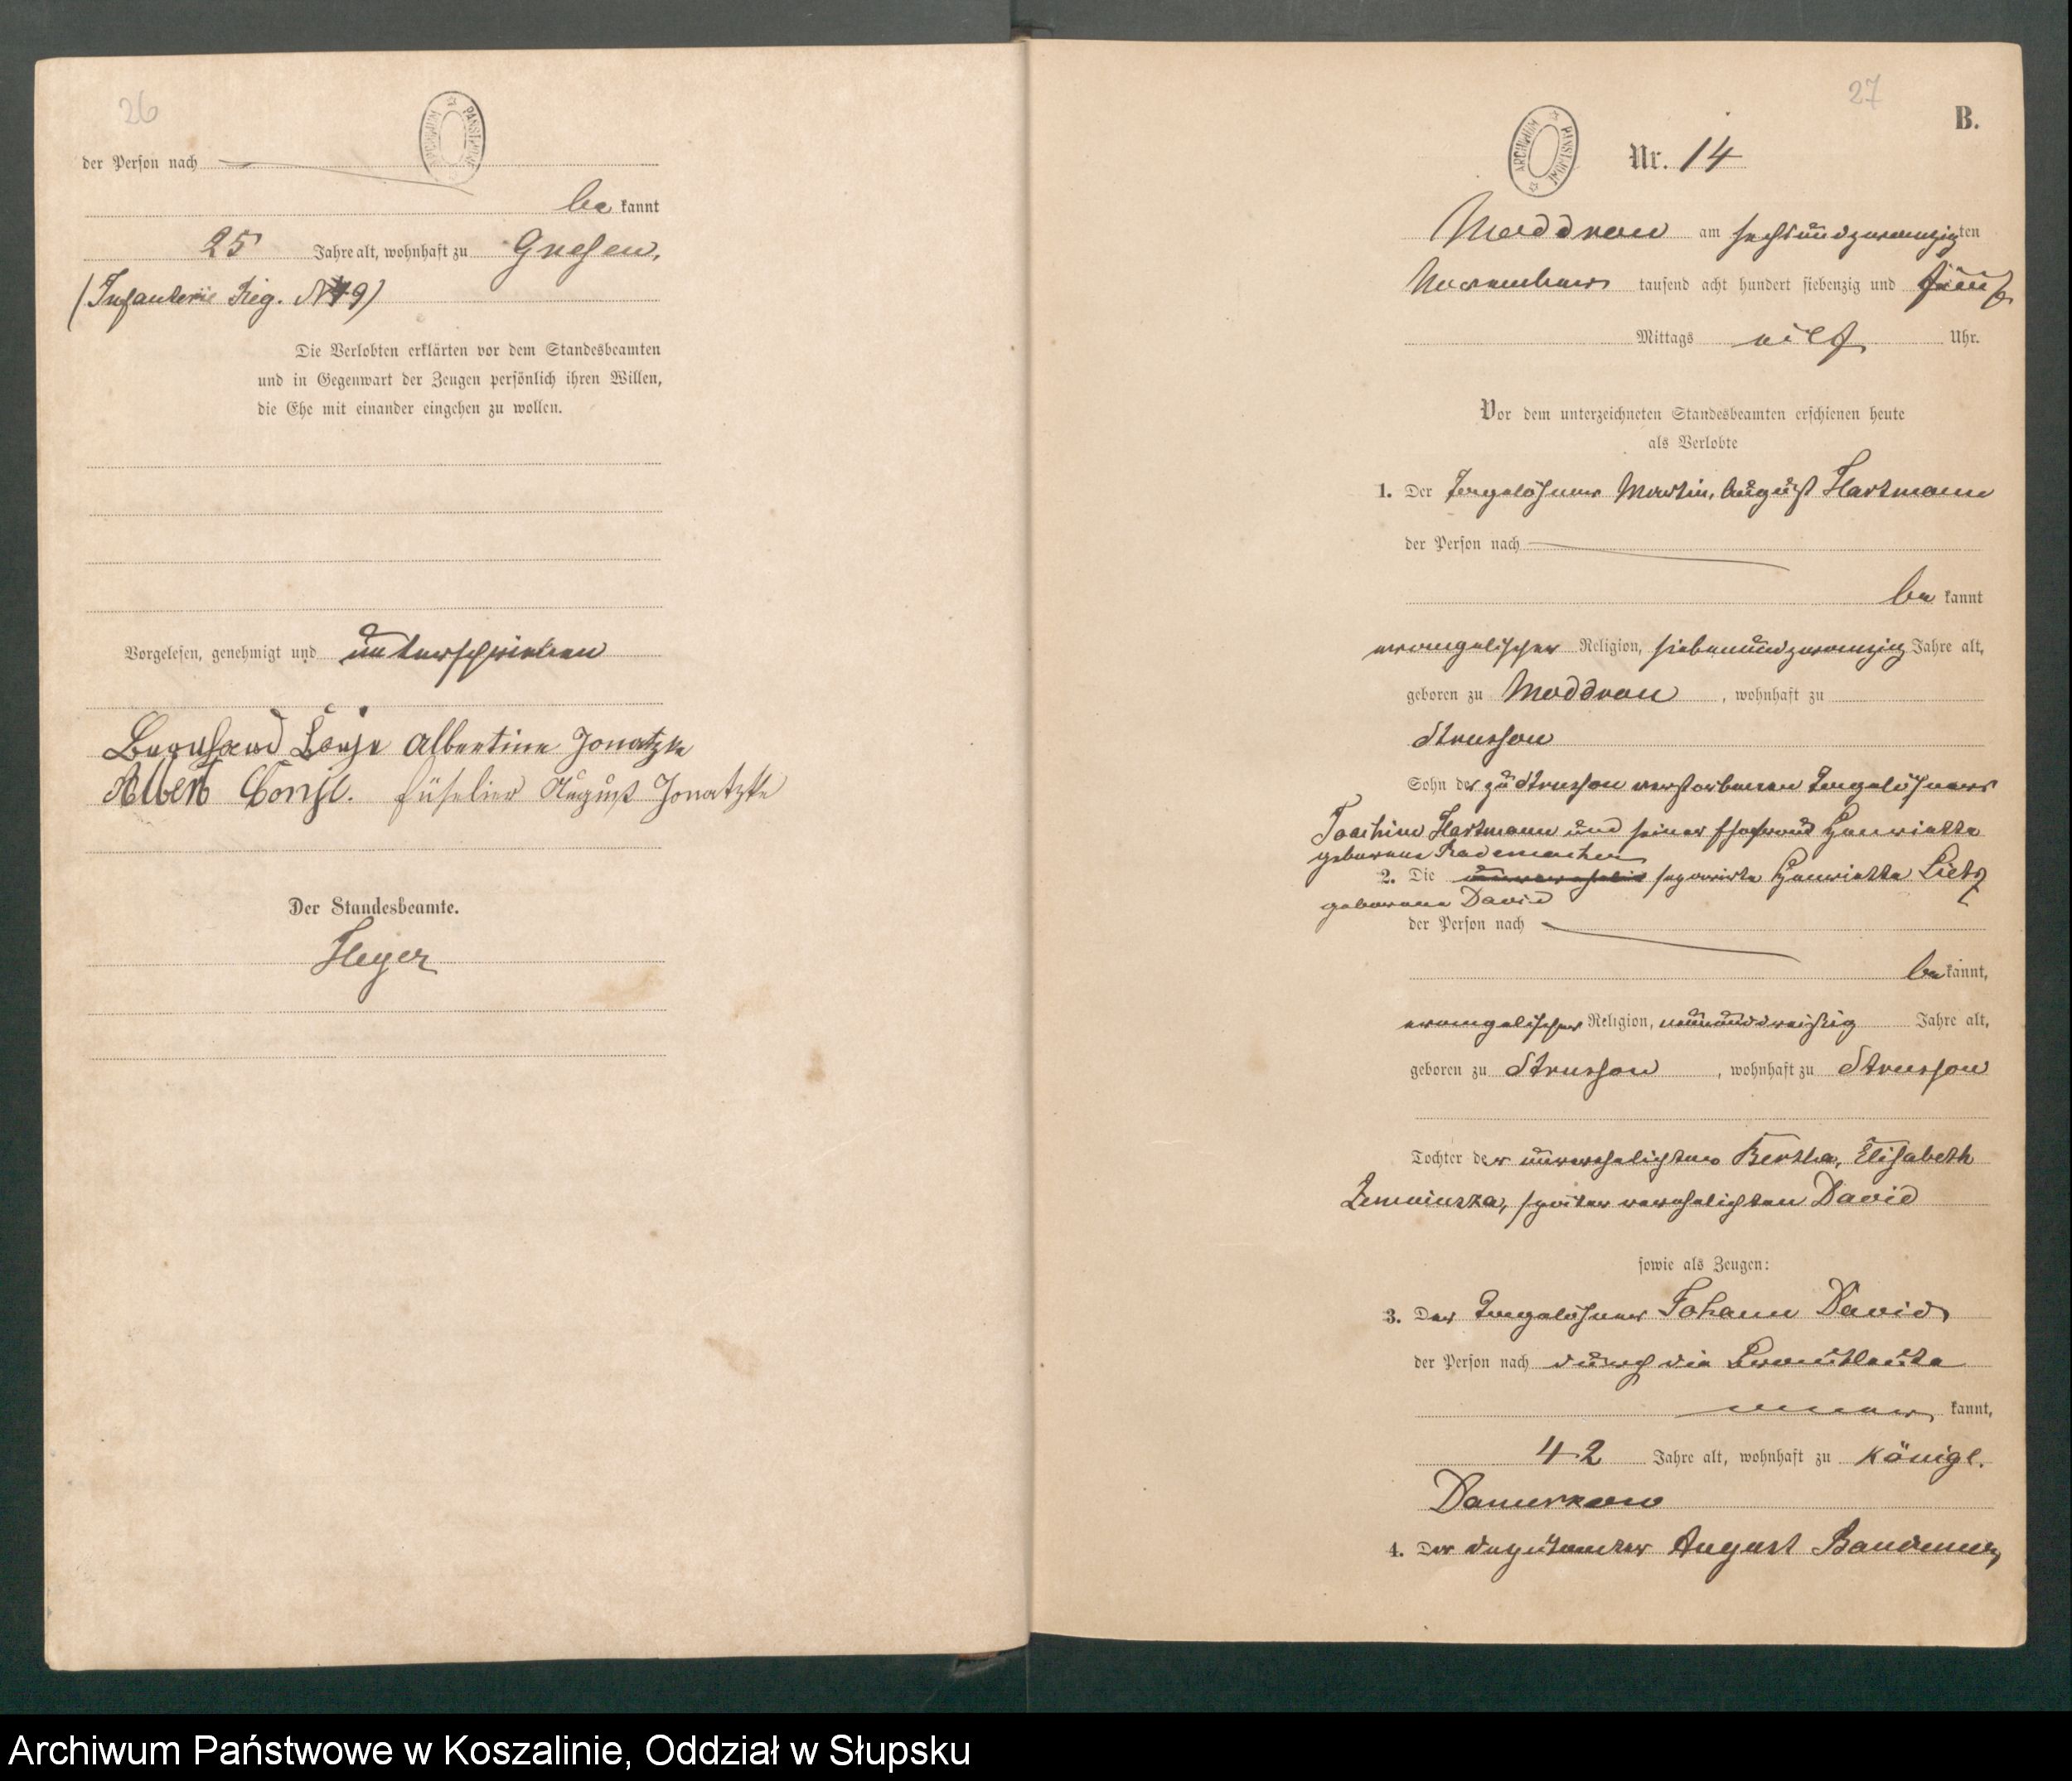 26
ARCHIWUM PAŃSTWOWE
der Person nach
be kannt
25 Jahre alt, wohnhaft zu Gnesen,
(Infanterie Reg. N 49)
Die Verlobten erklärten vor dem Standesbeamten
und in Gegenwart der Zeugen persönlich ihren Willen,
die Ehe mit einander eingehen zu wollen.
Vorgelesen, genehmigt und unterschrieben
Bernhard Albertine Jonatzke
Albert füselier August Jonatzke
Der Standesbeamte.
Heyer
27
B.
ARCHIWUM PAŃSTWOWE
Nr. 14
Moddrow am sechsundzwanzigten
November tausend acht hundert siebenzig und fünf
Mittags eilf Uhr.
Vor dem unterzeichneten Standesbeamten erschienen heute
als Verlobte
1. Der Tagelöhner Martin, August Hartmann
der Person nach
be kannt
evangelischer Religion, siebenundzwanzig Jahre alt,
geboren zu Moddrow, wohnhaft zu
Strussow
Sohn des zu Strussow verstorbenen Tagelöhners
Joachim Hartmann und seiner Ehefrau Henriette
geborene Rademacher
2. Die separirte Henriette Lietz
geborene David
der Person nach
be kannt,
evangelischer Religion, neununddreißig Jahre alt,
geboren zu Strussow, wohnhaft zu Strussow
Tochter der unverehelichten Bertha, Elisabeth
später verehelichten David
sowie als Zeugen:
3. Der Tagelöhner Johann David,
der Person nach durch die Brautleute
aner kannt,
42 Jahre alt, wohnhaft zu Königl.
Damerkow
4. Der Deputanter August
Archiwum Państwowe w Koszalinie, Oddział w Słupsku